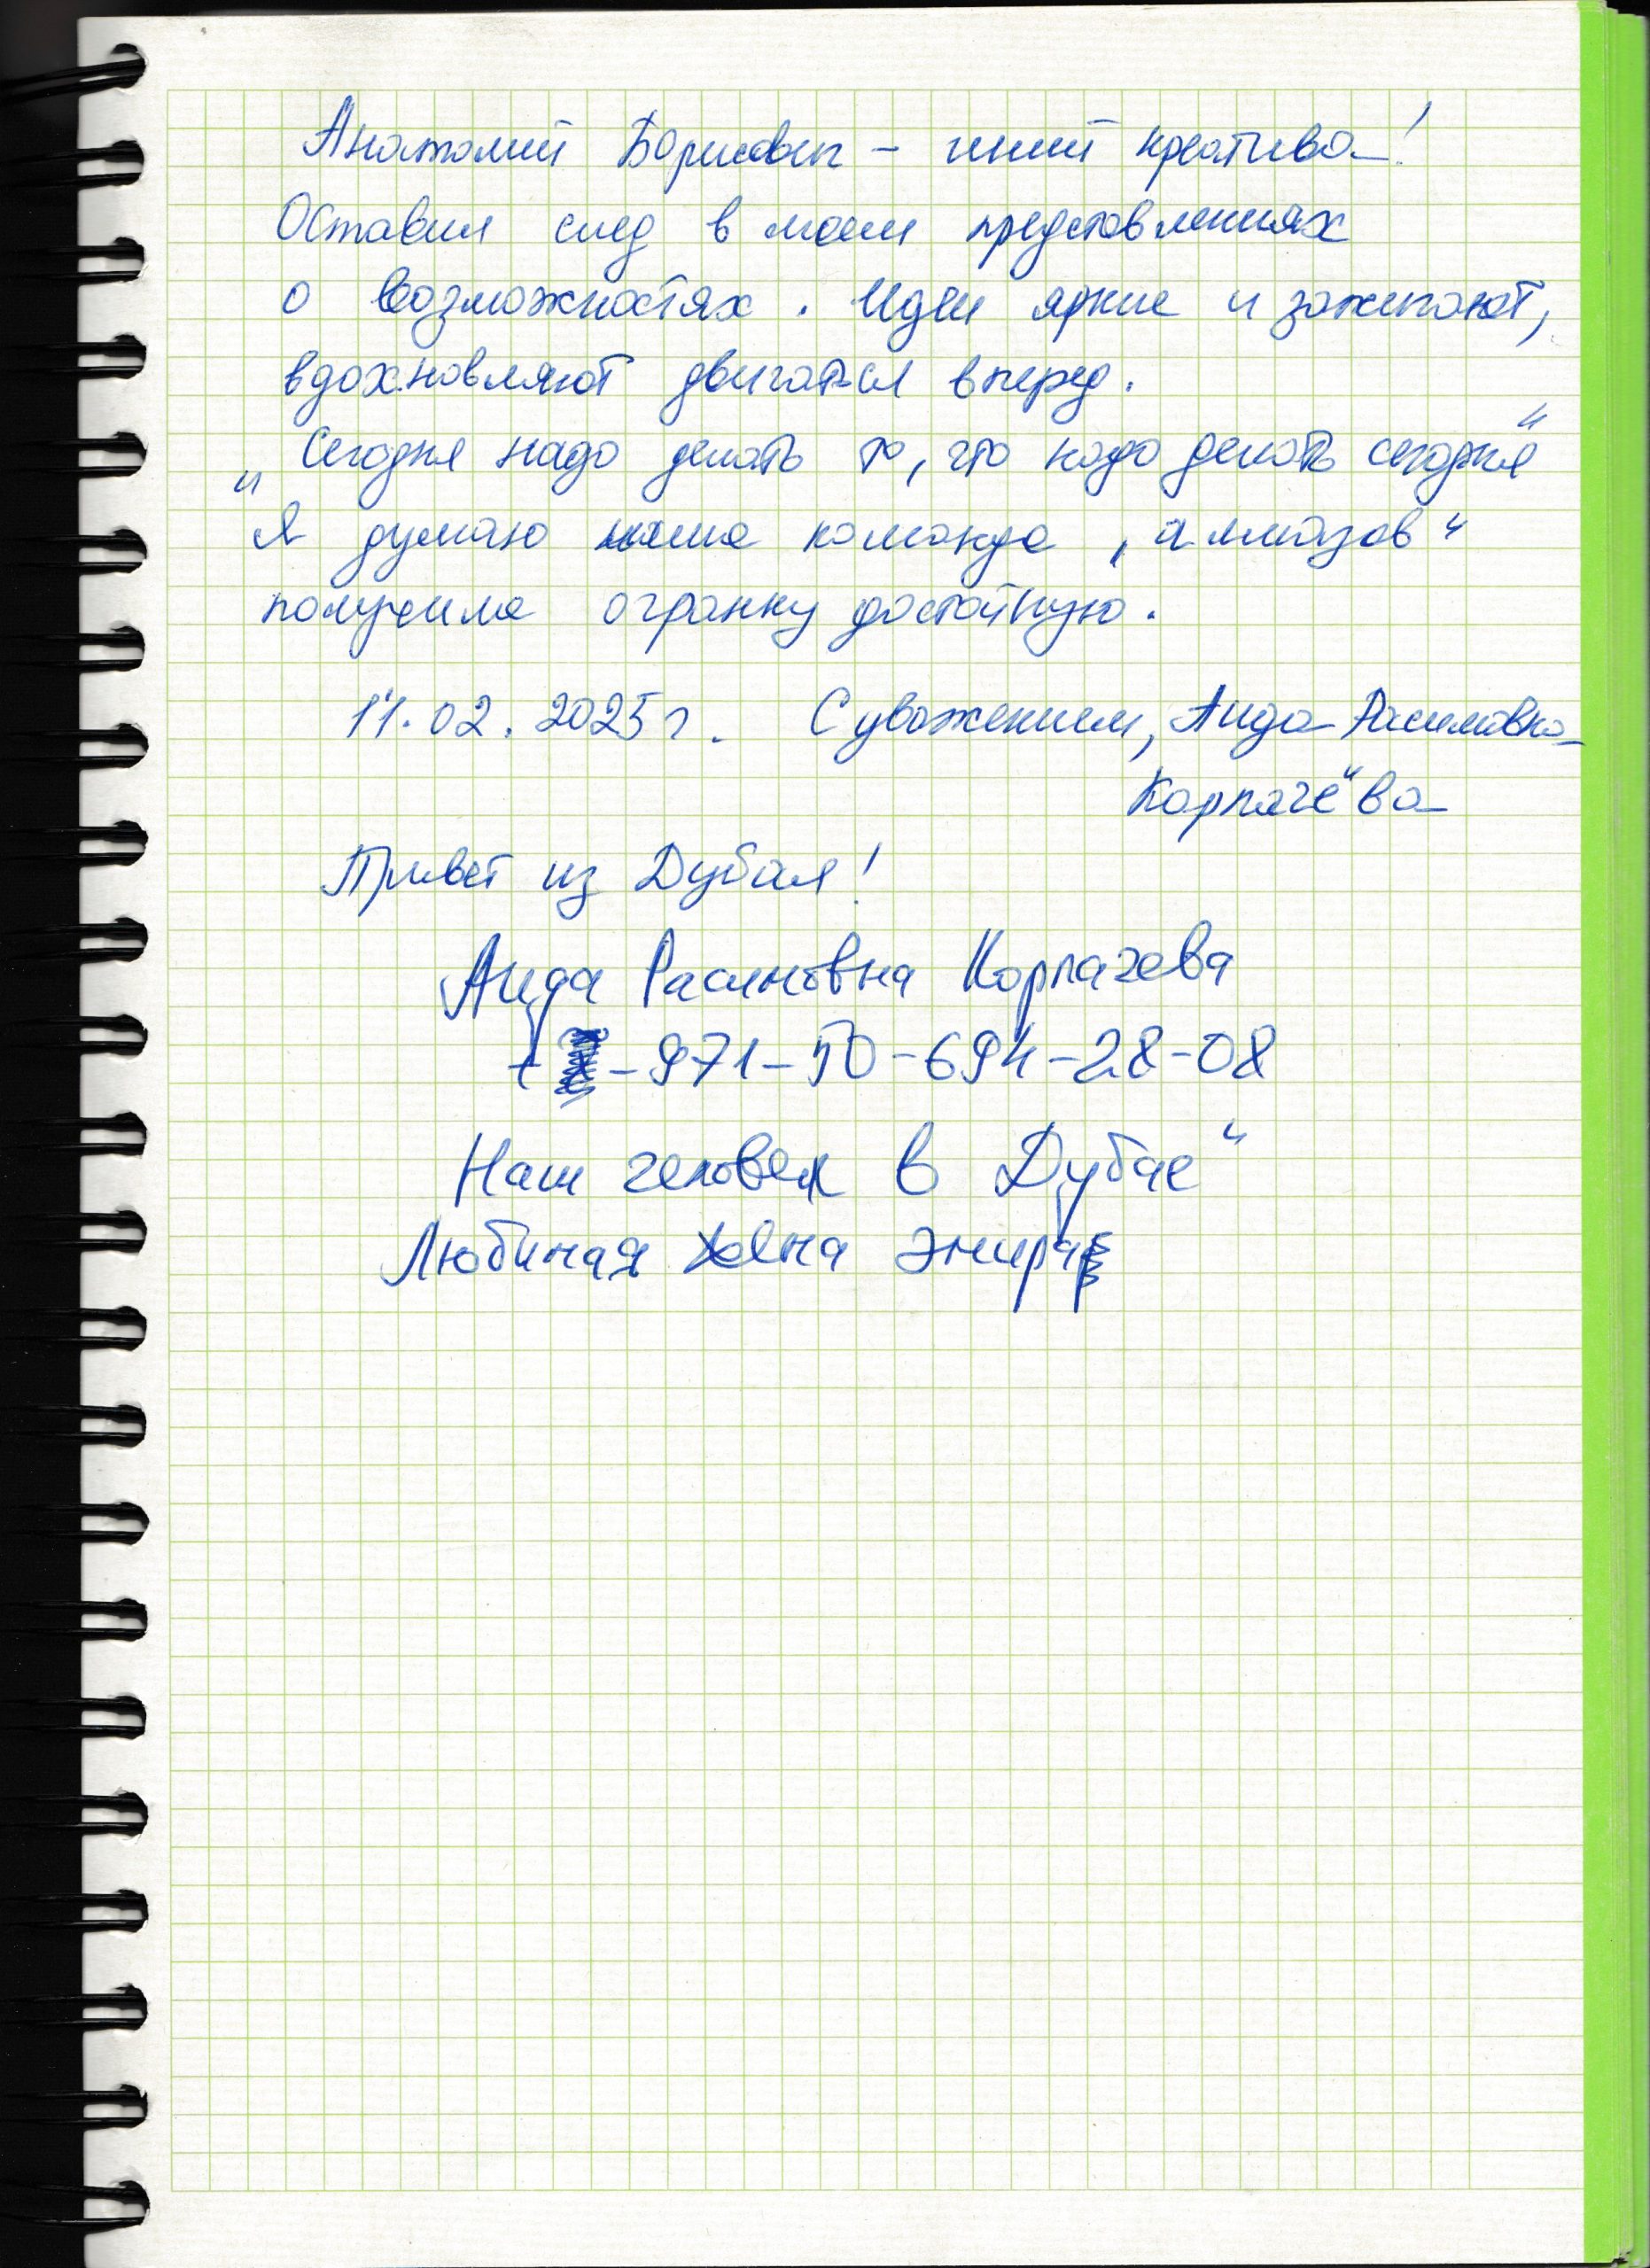 Анатолий Борисович – гений креатива!
Оставил след в моем представлениях
о возможностях. Идеи яркие и зажигают,
вдохновляют двигаться вперед.
„Сегодня надо делать то, что надо делать сегодня“
Я думаю наша команда „алмазов“
получила огранку достойную.
11.02.2025 г. С уважением, Аида Расимовна
Корпачёва
Привет из Дубая!
Аида Расимовна Корпачева
+ -971-50-694-28-08
Наш человек в Дубае“
Любимая жена эмира